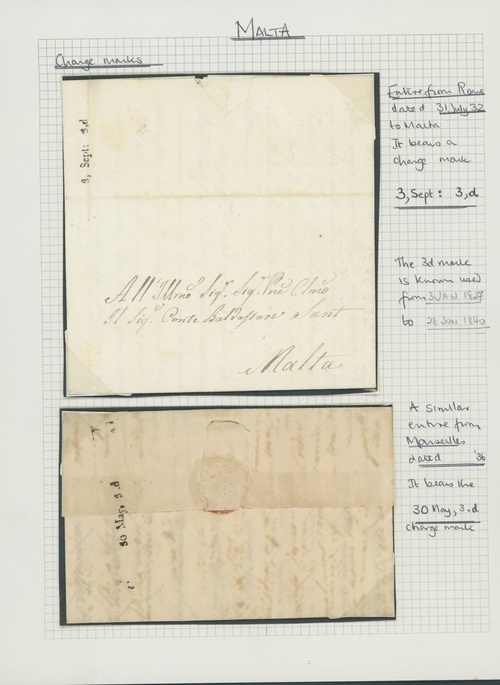 MALTA
Charge marks
3, Sept: 3,d
All' Illmo Sigr. Sigr. Pne Clmo
Il Sigr. Conte Baldassare Sant
Malta
Entire from Rome
dated 31 July 32
to Malta
It bears a
charge mark
3, Sept: 3, d
The 3d mark
is known used
from 3 JAN 18
to 28 JUN 1840
30 May, 3.d
A similar
entire from
Marseilles
dated '36
It bears the
30 May, 3.d
charge mark